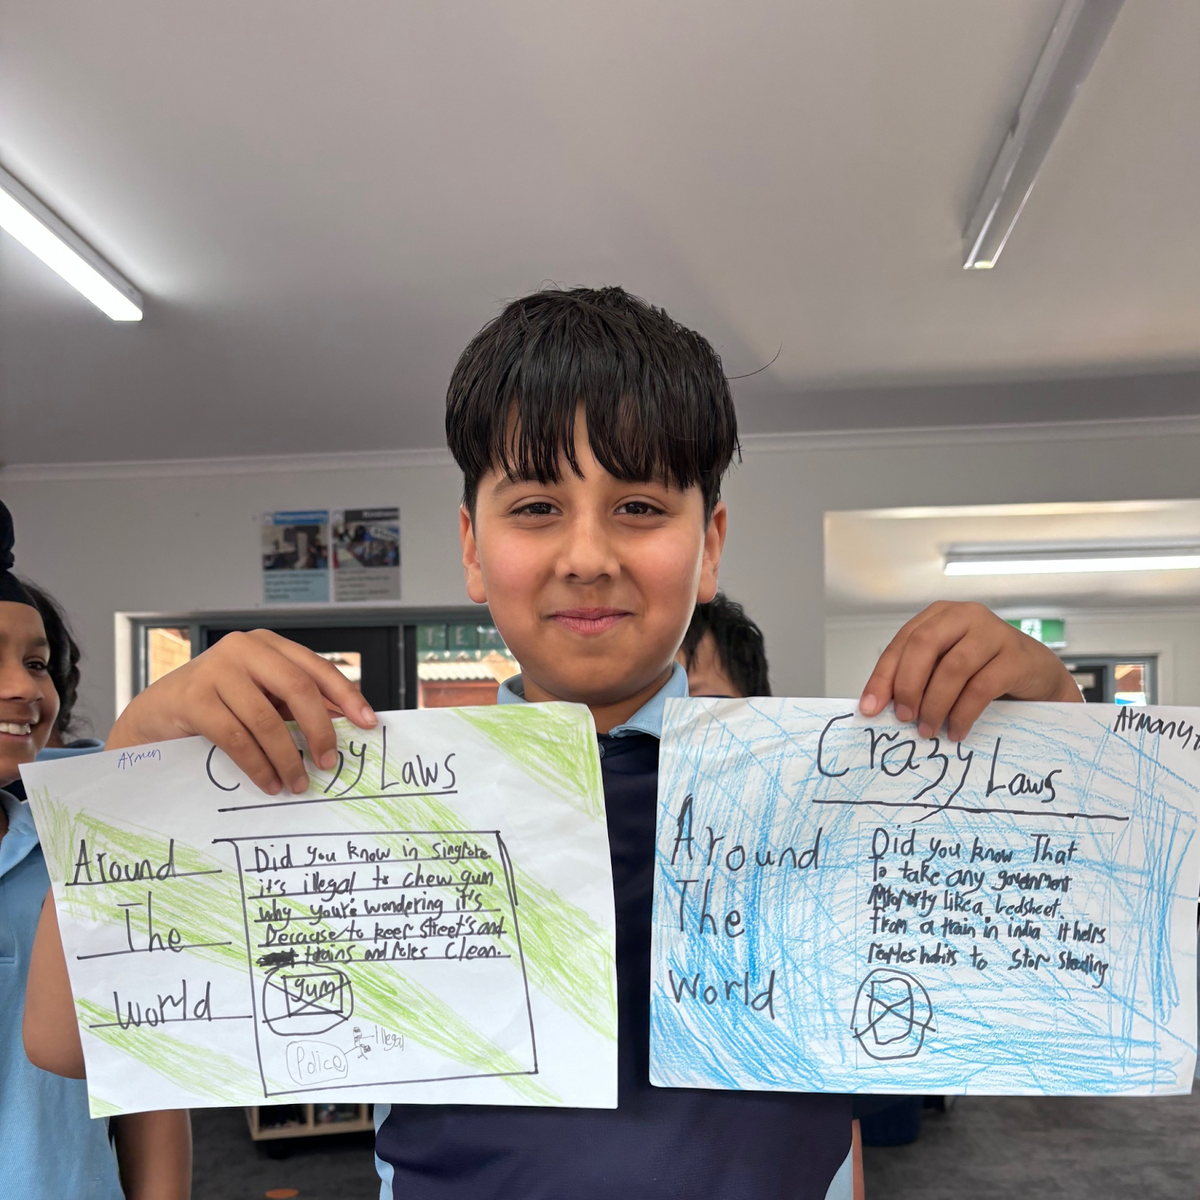 Armen
Crazy Laws
Around
The
World
Did you know in Singpore
it's illegal to chew gum
why you're wondering it's
Because to keep street's and
trains and Poles Clean.
gum
Police
Illegal
Crazy Laws
Around
The
World
Did you know That
To take any government
like a bedsheet
from a train in india it helps
habits to Stop Stealing